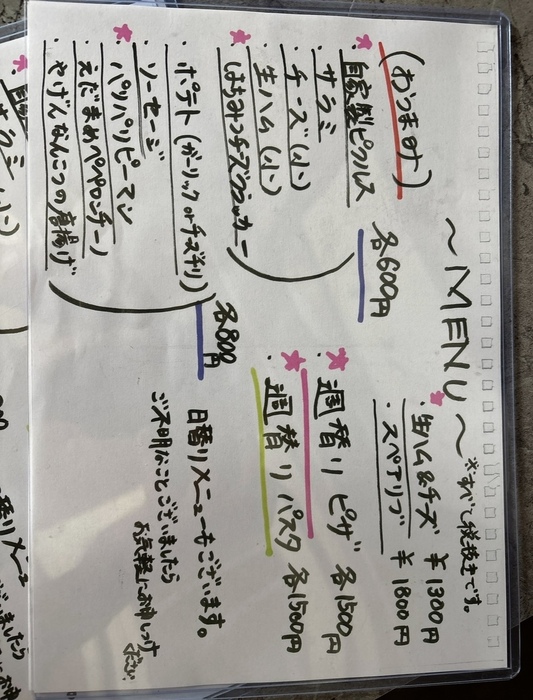 ～MENU～
※すべて税抜きです。
(おつまみ)
・自家製ピクルス
・サラミ
・チーズ(小)
・生ハム(小)
・はちみつチーズクラッカー
各600円
・ポテト(ガーリック or チーズチリ)
・ソーセージ
・パリパリピーマン
・えだまめペペロンチーノ
・やげんなんこつの唐揚げ
各800円
・生ハム&チーズ ¥1300円
・スペアリブ ¥1800円
・週替りピザ 各1500円
・週替りパスタ 各1500円
日替りメニューもございます。
ご不明なことございましたら
お気軽にお申しつけ
下さい